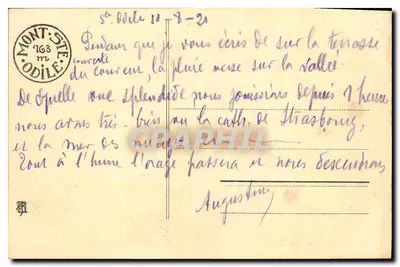 MONT-STE
763
m
ODILE
Ste Odile 10-8-20
Pendant que je vous écris de sur la terrasse
couverte
du couvent, la pluie verse sur la vallée.
De quelle vue splendide nous jouissons depuis 1 heure
nous avons très bien vu la cath. de Strasbourg,
et la mer de nuages
Tout à l'heure l'orage passera et nous descendrons
Augustine
CPAPHIL